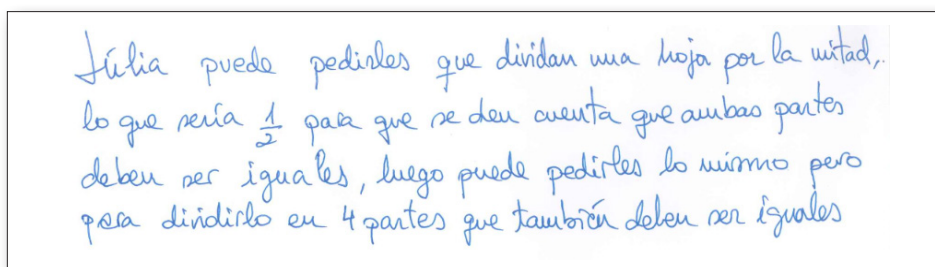 Júlia puede pedirles que dividan una hoja por la mitad,
lo que sería 1/2 para que se den cuenta que ambas partes
deben ser iguales, luego puede pedirles lo mismo pero
para dividirlo en 4 partes que también deben ser iguales